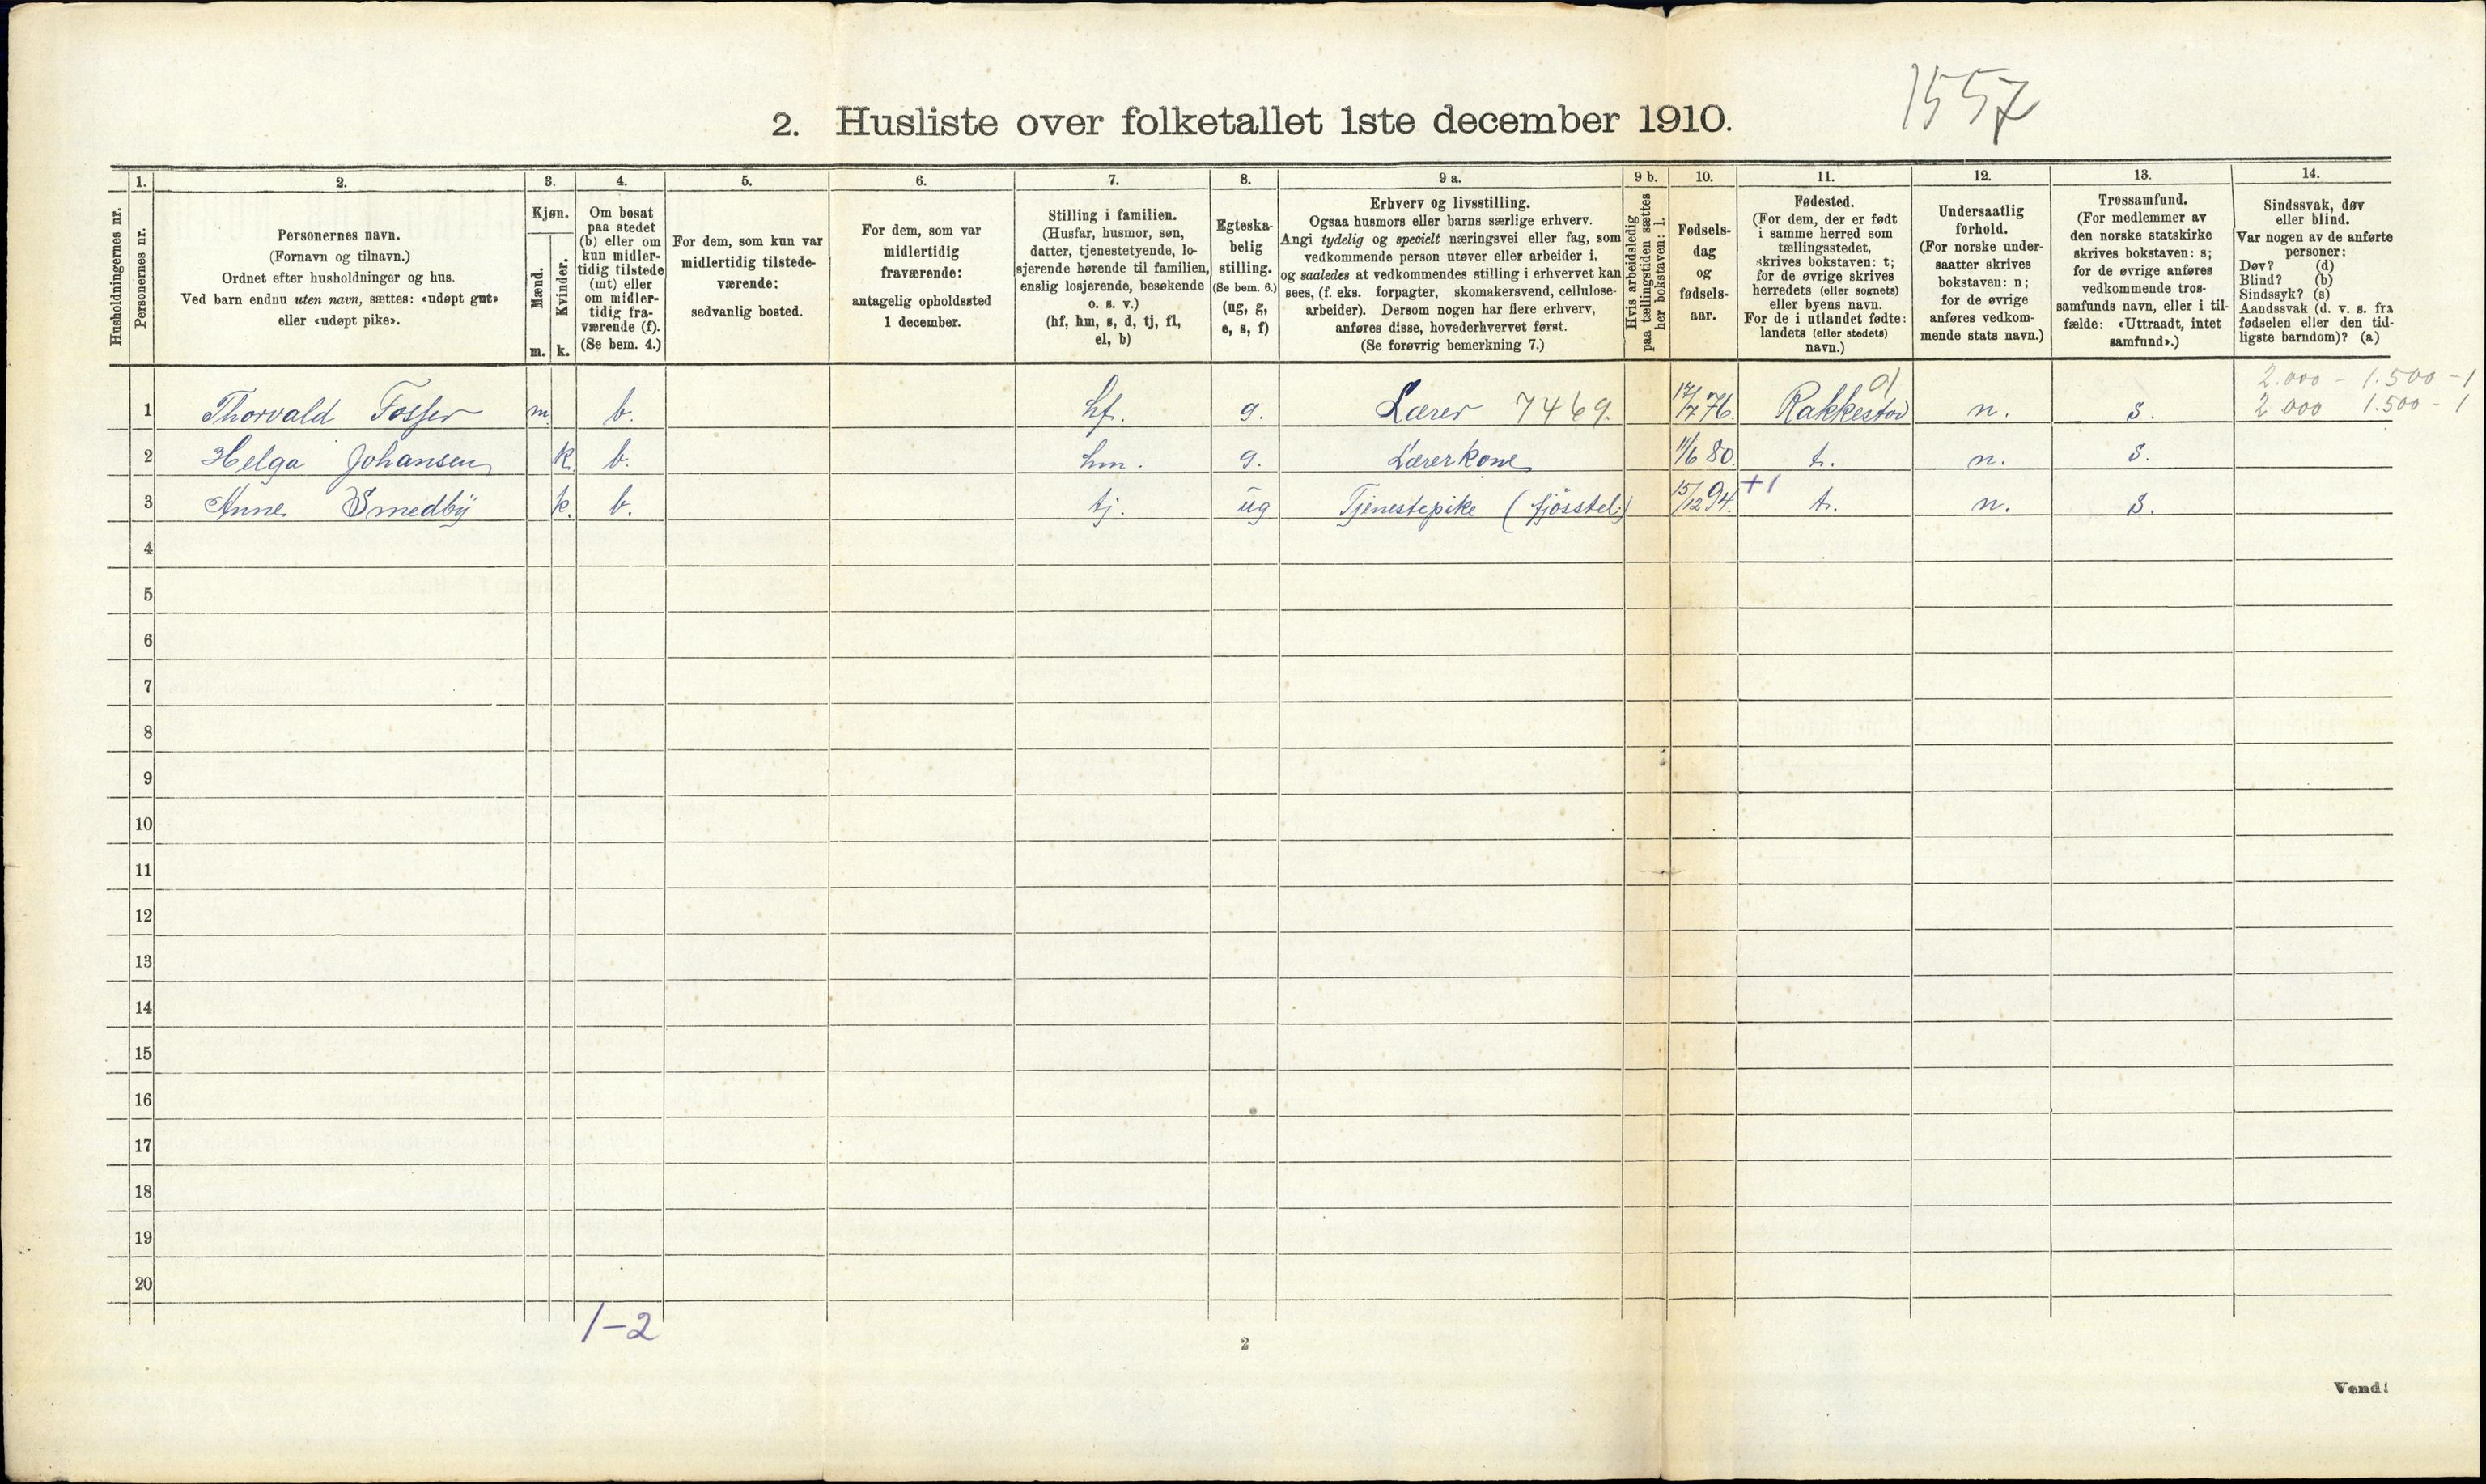 1557
2. Husliste over folketallet 1ste december 1910.
1. 2. 3. 4. 5. 6. 7. 8. 9 a. 9 b. 10. 11. 12. 13. 14.
Husholdningernes nr.
Personernes nr.
Personernes navn.
(Fornavn og tilnavn.)
Ordnet efter husholdninger og hus.
Ved barn endnu uten navn, sættes: «udøpt gut»
eller «udøpt pike».
Kjøn.
Mænd.
Kvinder.
m. k.
Om bosat
paa stedet
(b) eller om
kun midler-
tidig tilstede
(mt) eller
om midler-
tidig fra-
værende (f).
(Se bem. 4.)
For dem, som kun var
midlertidig tilstede-
værende:
sedvanlig bosted.
For dem, som var
midlertidig
fraværende:
antagelig opholdssted
1 december.
Stilling i familien.
(Husfar, husmor, søn,
datter, tjenestetyende, lo-
sjerende hørende til familien,
enslig losjerende, besøkende
o. s. v.)
(hf, hm, s, d, tj, fl,
el, b)
Egteska-
belig
stilling.
(Se bem. 6.)
(ug, g,
e, s, f)
Erhverv og livsstilling.
Ogsaa husmors eller barns særlige erhverv.
Angi tydelig og specielt næringsvei eller fag, som
vedkommende person utøver eller arbeider i,
og saaledes at vedkommendes stilling i erhvervet kan
sees, (f. eks. forpagter, skomakersvend, cellulose-
arbeider). Dersom nogen har flere erhverv,
anføres disse, hovederhvervet først.
(Se forøvrig bemerkning 7.)
Hvis arbeidsledig
paa tællingstiden sættes
her bokstaven: l.
Fødsels-
dag
og
fødsels-
aar.
Fødested.
(For dem, der er født
i samme herred som
tællingsstedet,
skrives bokstaven: t;
for de øvrige skrives
herredets (eller sognets)
eller byens navn.
For de i utlandet fødte:
landets (eller stedets)
navn.)
Undersaatlig
forhold.
(For norske under-
saatter skrives
bokstaven: n;
for de øvrige
anføres vedkom-
mende stats navn.)
Trossamfund.
(For medlemmer av
den norske statskirke
skrives bokstaven: s;
for de øvrige anføres
vedkommende tros-
samfunds navn, eller i til-
fælde: «Uttraadt, intet
samfund».)
Sindssvak, døv
eller blind.
Var nogen av de anførte
personer:
Døv? (d)
Blind? (b)
Sindssyk? (s)
Aandssvak (d. v. s. fra
fødselen eller den tid-
ligste barndom)? (a)
2.000 - 1.500 - 1
1 Thorvald Fosser m b. hf. g. Lærer 7469. 17/7 76. Rakkestad n. s. 2.000 1.500 - 1
2 Helga Johansen k. b. hm. g. Lærerkone 11/6 80. t. n. s.
3 Anne Smedby k. b. tj. ug Tjenestepike (fjösstel) 15/12 94. +1 t. n. s.
4
5
6
7
8
9
10
11
12
13
14
15
16
17
18
19
20
1-2
2
Vend!